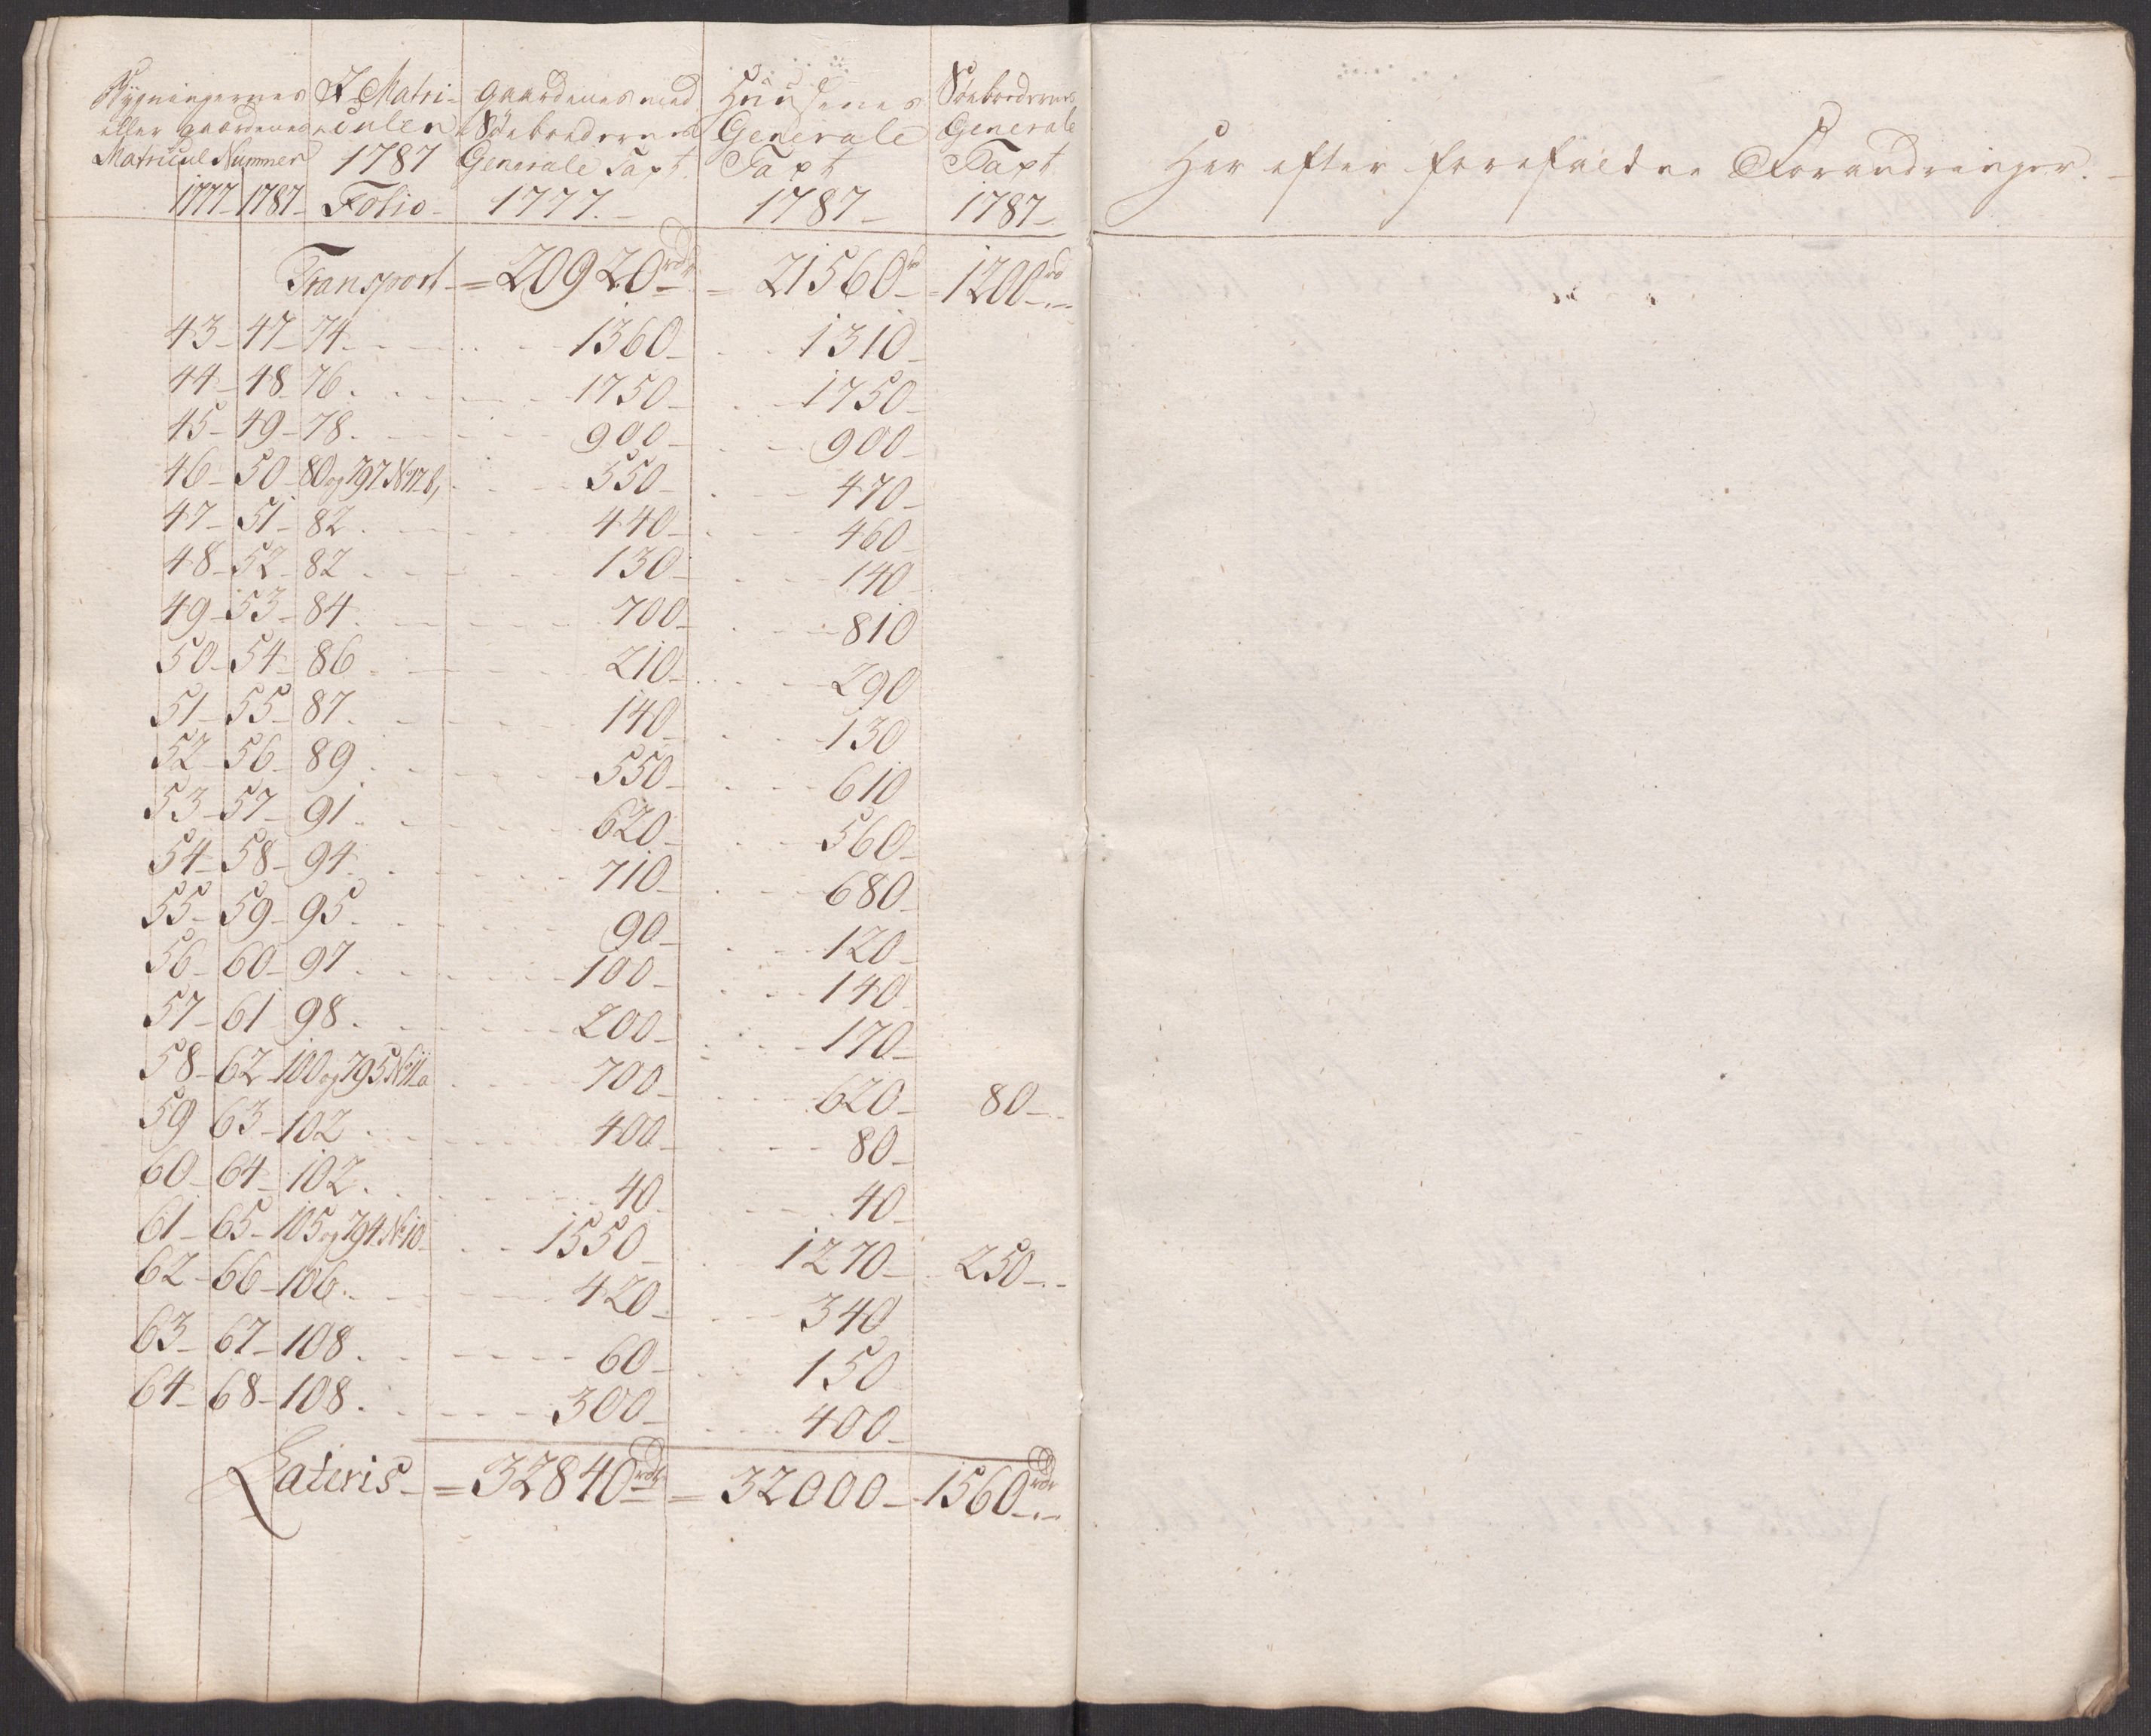 Bygningernes eller gaardenes Matricul Numner 1777 - 1787 -
I Matriculen 1787 Folio -
gaardenes med Søeboedernes Generale Taxt. 1777. -
Huusenes Generale Taxt 1787 -
Søeboedernes Generale Taxt 1787 -
Transport - = 20920 rdr = 21560 rd - 1200 rd
43 - 47 - 74 - 1360 - 1310 -
44 - 48 - 76 . 1750 - 1750 -
45 - 49 - 78 . 900 - 900 -
46 - 50 - 80 og 797 No 12 b, 550 - 470 -
47 - 51 - 82 . 440 - 460 -
48 - 52 - 82 . 130 - 140 -
49 - 53 - 84 . 700 - 810
50 - 54 - 86 210 - 290
51 - 55 - 87 . 140 - 130
52 - 56 - 89 . 550 - 610
53 - 57 - 91 . 620 - 560 -
54 - 58 - 94 . 710 - 680 -
55 - 59 - 95 . 90 - 120 -
56 - 60 - 97 . 100 - 140 -
57 - 61 - 98 . 200 - 170 -
58 - 62 - 100 og 795 No 11 a 700 - 620 - 80 -
59 63 - 102 . 400 - 80 -
60 - 64 - 102 . 40 - 40 -
61 - 65 - 105 og 794 No 10 - 1550 - 1270 - 250 -
62 - 66 - 106 . 420 - 340
63 - 67 - 108 . 60 - 150
64 - 68 - 108 . 300 - 400 -
Lateris - = 32840 rdr = 32000 - 1560 rdr
Her efter forefaldne Forandringer. -